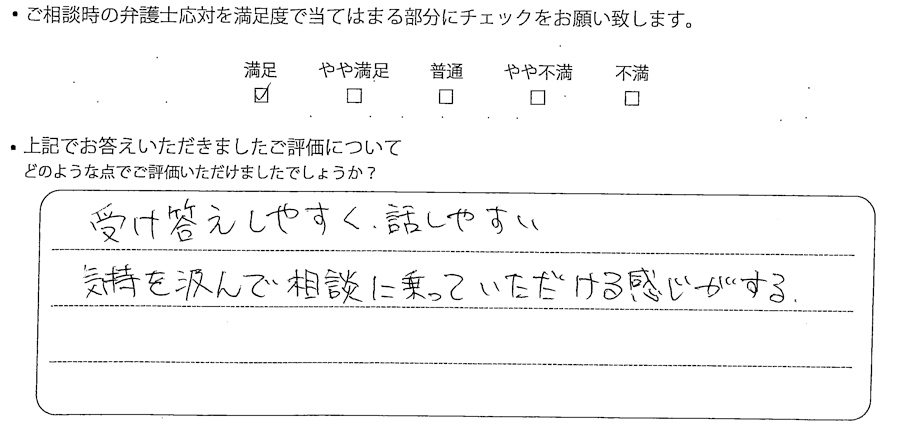 ・ご相談時の弁護士応対を満足度で当てはまる部分にチェックをお願い致します。
満足 やや満足 普通 やや不満 不満
☑ □ □ □ □
・上記でお答えいただきましたご評価について
どのような点でご評価いただけましたでしょうか？
受け答えしやすく、話しやすい
気持を汲んで相談に乗っていただける感じがする。